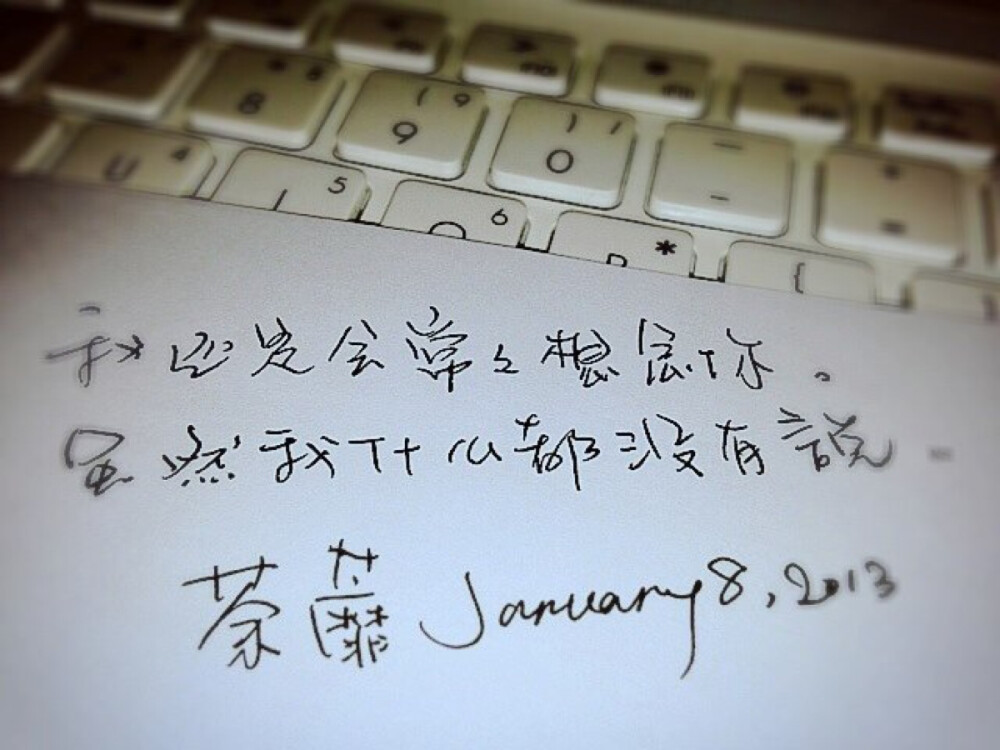 8 * 8
( 9 9
) 0 /
— -
+ =
U 4
5
6
*
{
我还是会常々想念你。
虽然我什么都没有說。
荼蘼 January 8, 2013